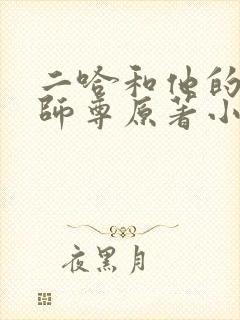 二哈和他的
師尊原著小
夜黑月